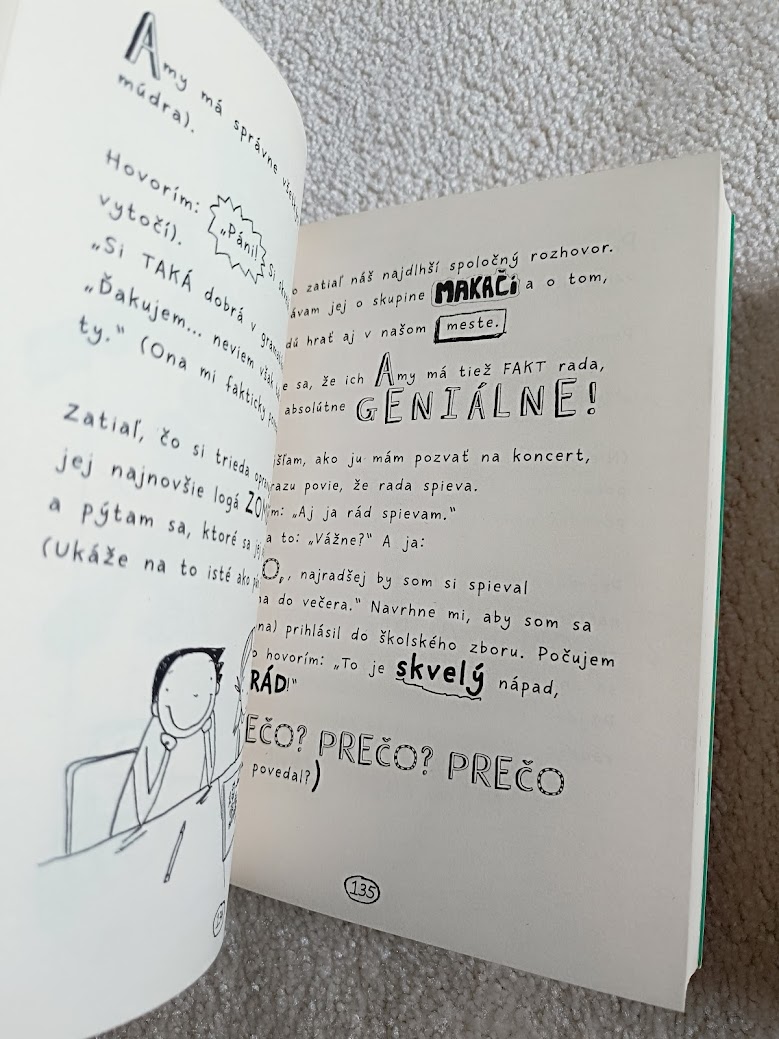 Amy má správne
múdra).
Hovorím: „Páni! Si
vytočí).
„Si TAKÁ dobrá v
„Ďakujem... neviem však
ty.“ (Ona mi fakticky
Zatiaľ, čo si trieda
jej najnovšie logá
a pýtam sa, ktoré sa
(Ukáže na to isté ako
zatiaľ náš najdlhší spoločný rozhovor.
jej o skupine MAKAČI a o tom,
hrať aj v našom meste.
sa, že ich Amy má tiež FAKT rada,
absolútne GENIÁLNE!
ako ju mám pozvať na koncert,
povie, že rada spieva.
„Aj ja rád spievam.“
a to: „Vážne?“ A ja:
najradšej by som si spieval
do večera.“ Navrhne mi, aby som sa
prihlásil do školského zboru. Počujem
hovorím: „To je skvelý nápad,
RÁD!“
PREČO? PREČO
povedal?)
135